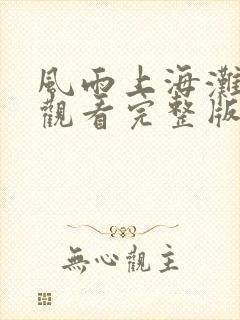 風雨上海灘
觀看完整版
無心觀主